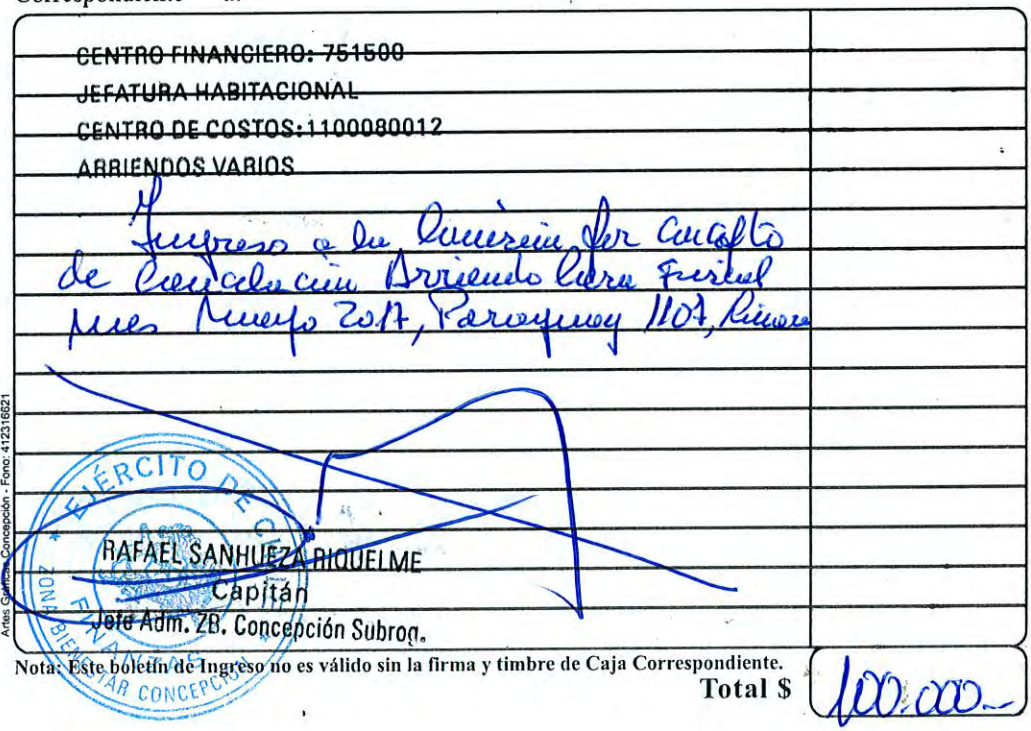 CENTRO FINANCIERO: 751500
JEFATURA HABITACIONAL
CENTRO DE COSTOS:1100080012
ARRIENDOS VARIOS
Ingreso a la por concepto
de Cancelación Arriendo Casa Fiscal
mes Mayo 2017, Paraguay 1107,
Artes Gráficas Concepción - Fono: 412316621
EJÉRCITO DE CHILE
FINANZAS
ZONA BIENESTAR CONCEPCIÓN
RAFAEL SANHUEZA RIQUELME
Capitán
Jefe Adm. ZB. Concepción Subrog.
Nota: Este boletín de Ingreso no es válido sin la firma y timbre de Caja Correspondiente.
Total $ 100.000.-